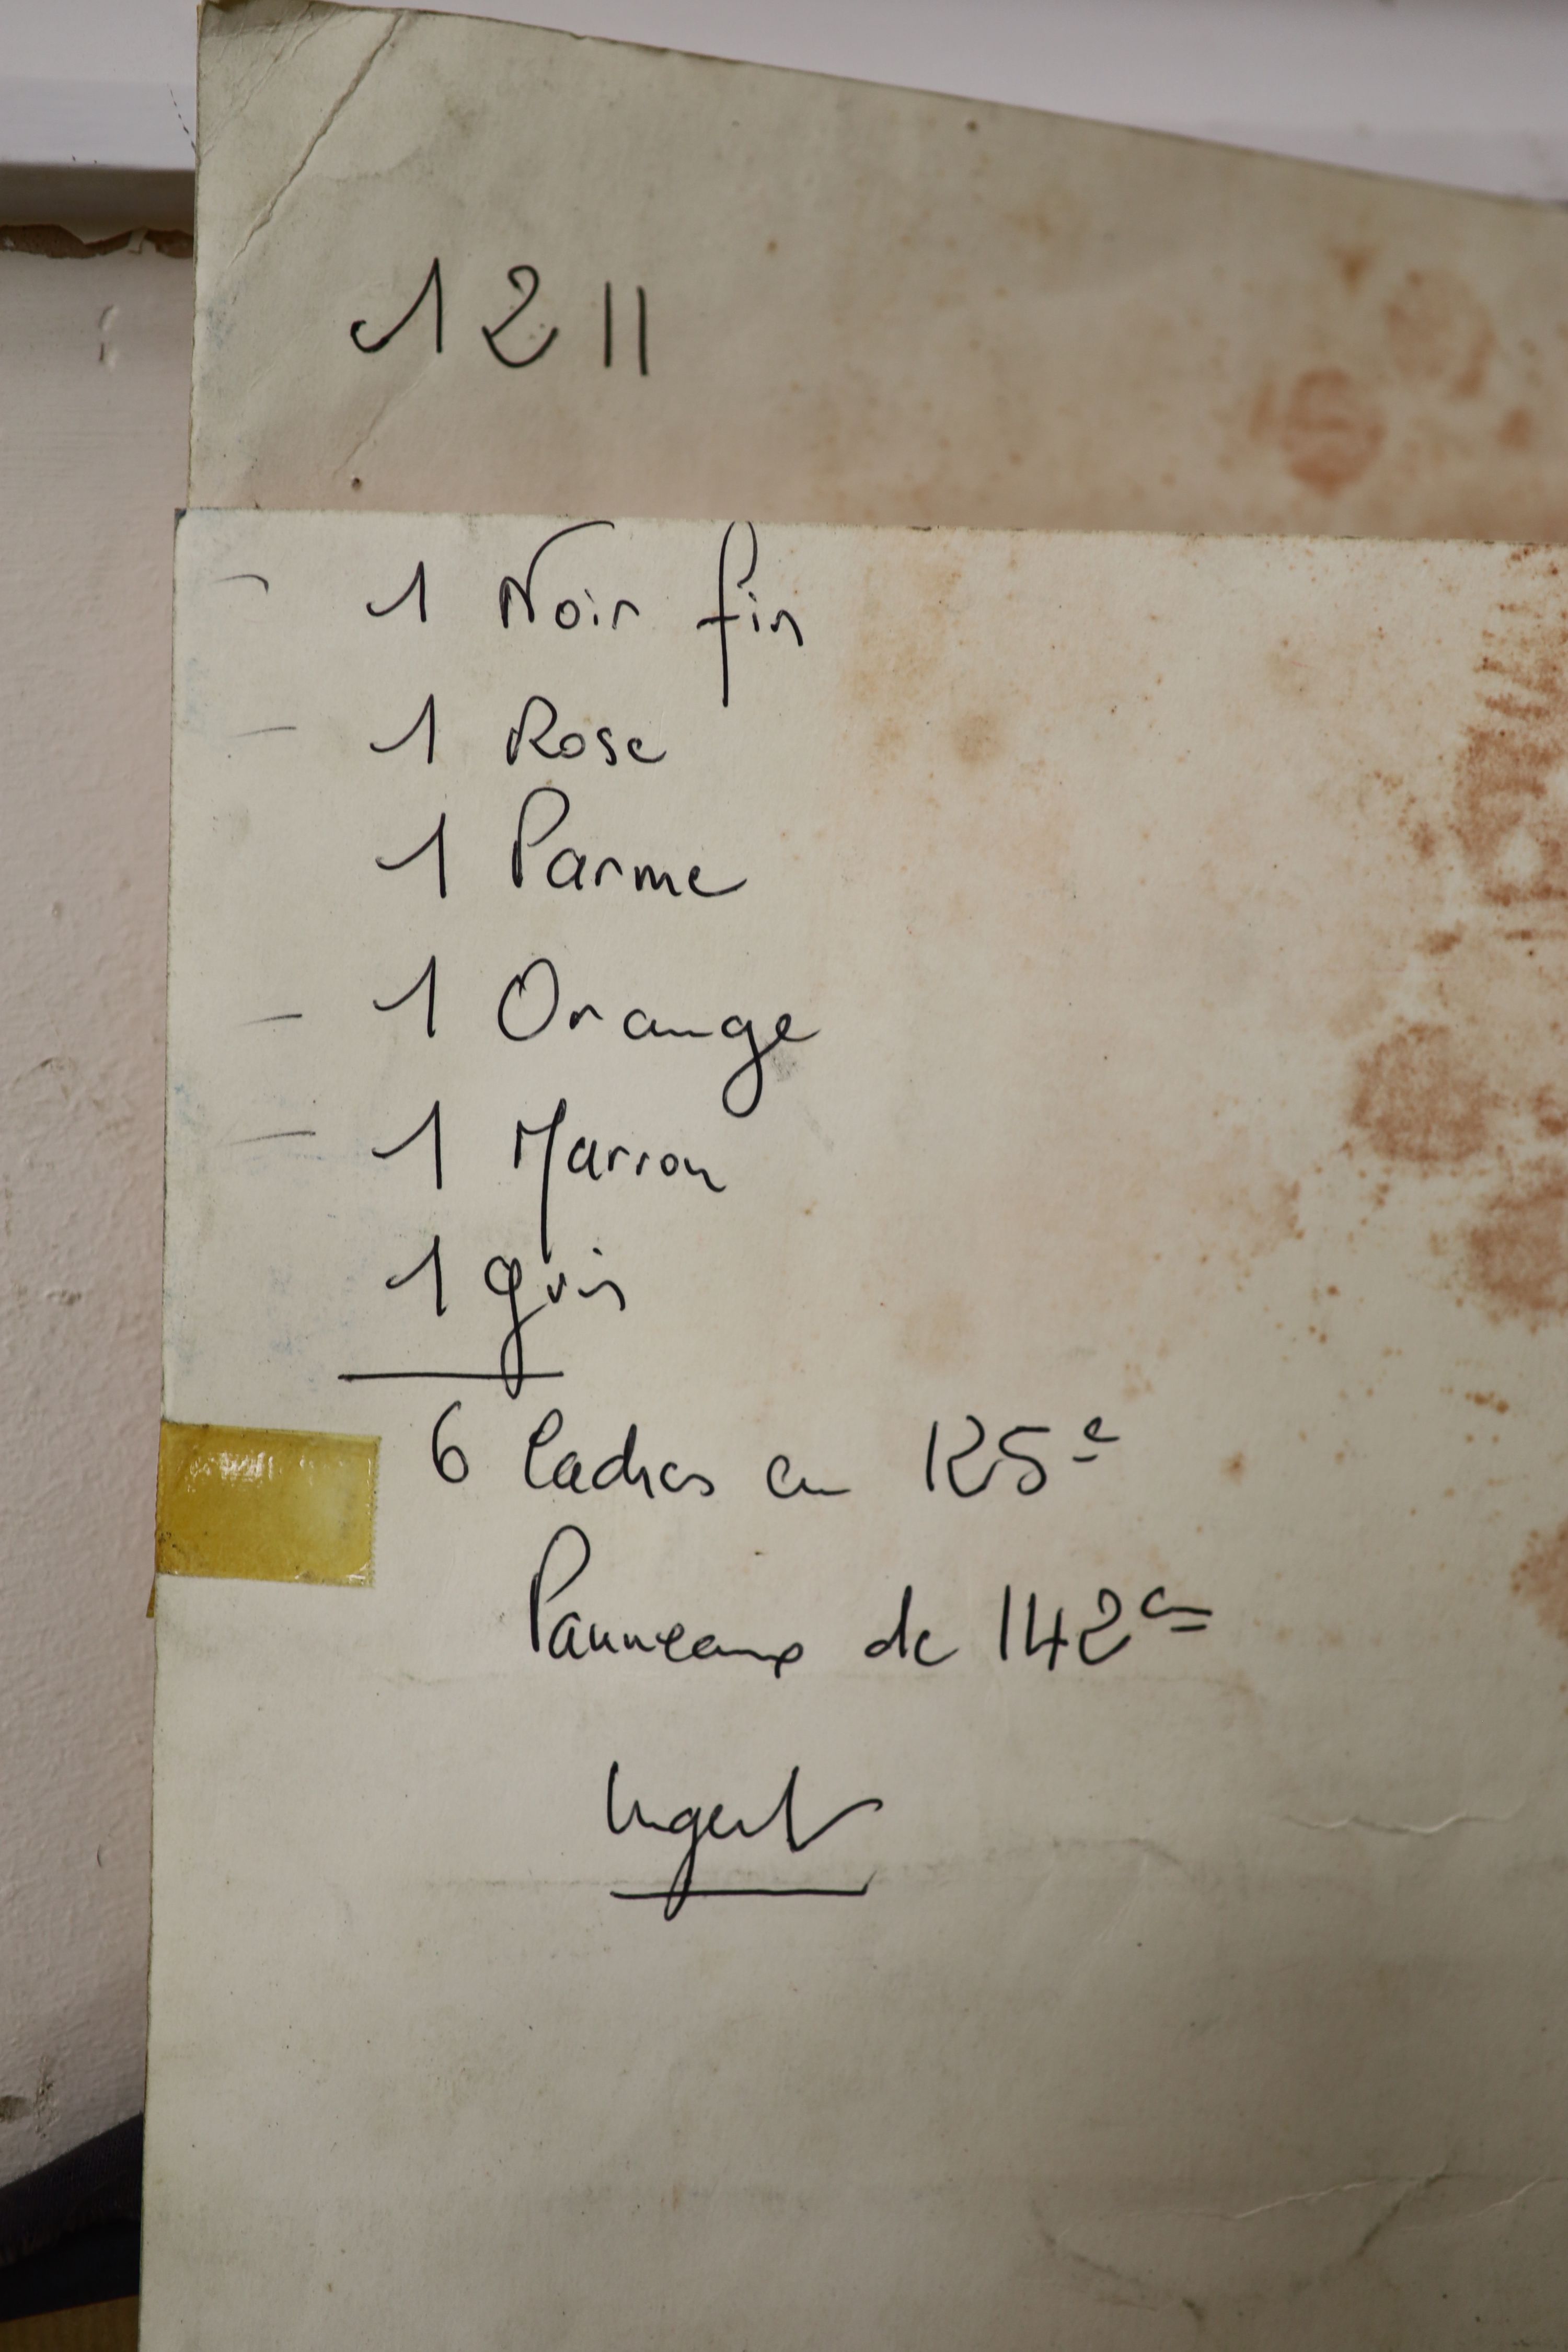 1211
- 1 Noir fin
- 1 Rose
1 Parme
- 1 Orange
- 1 Marron
1 gris
6 Cadres en 125 c
Panneaux de 142 cm
Urgent